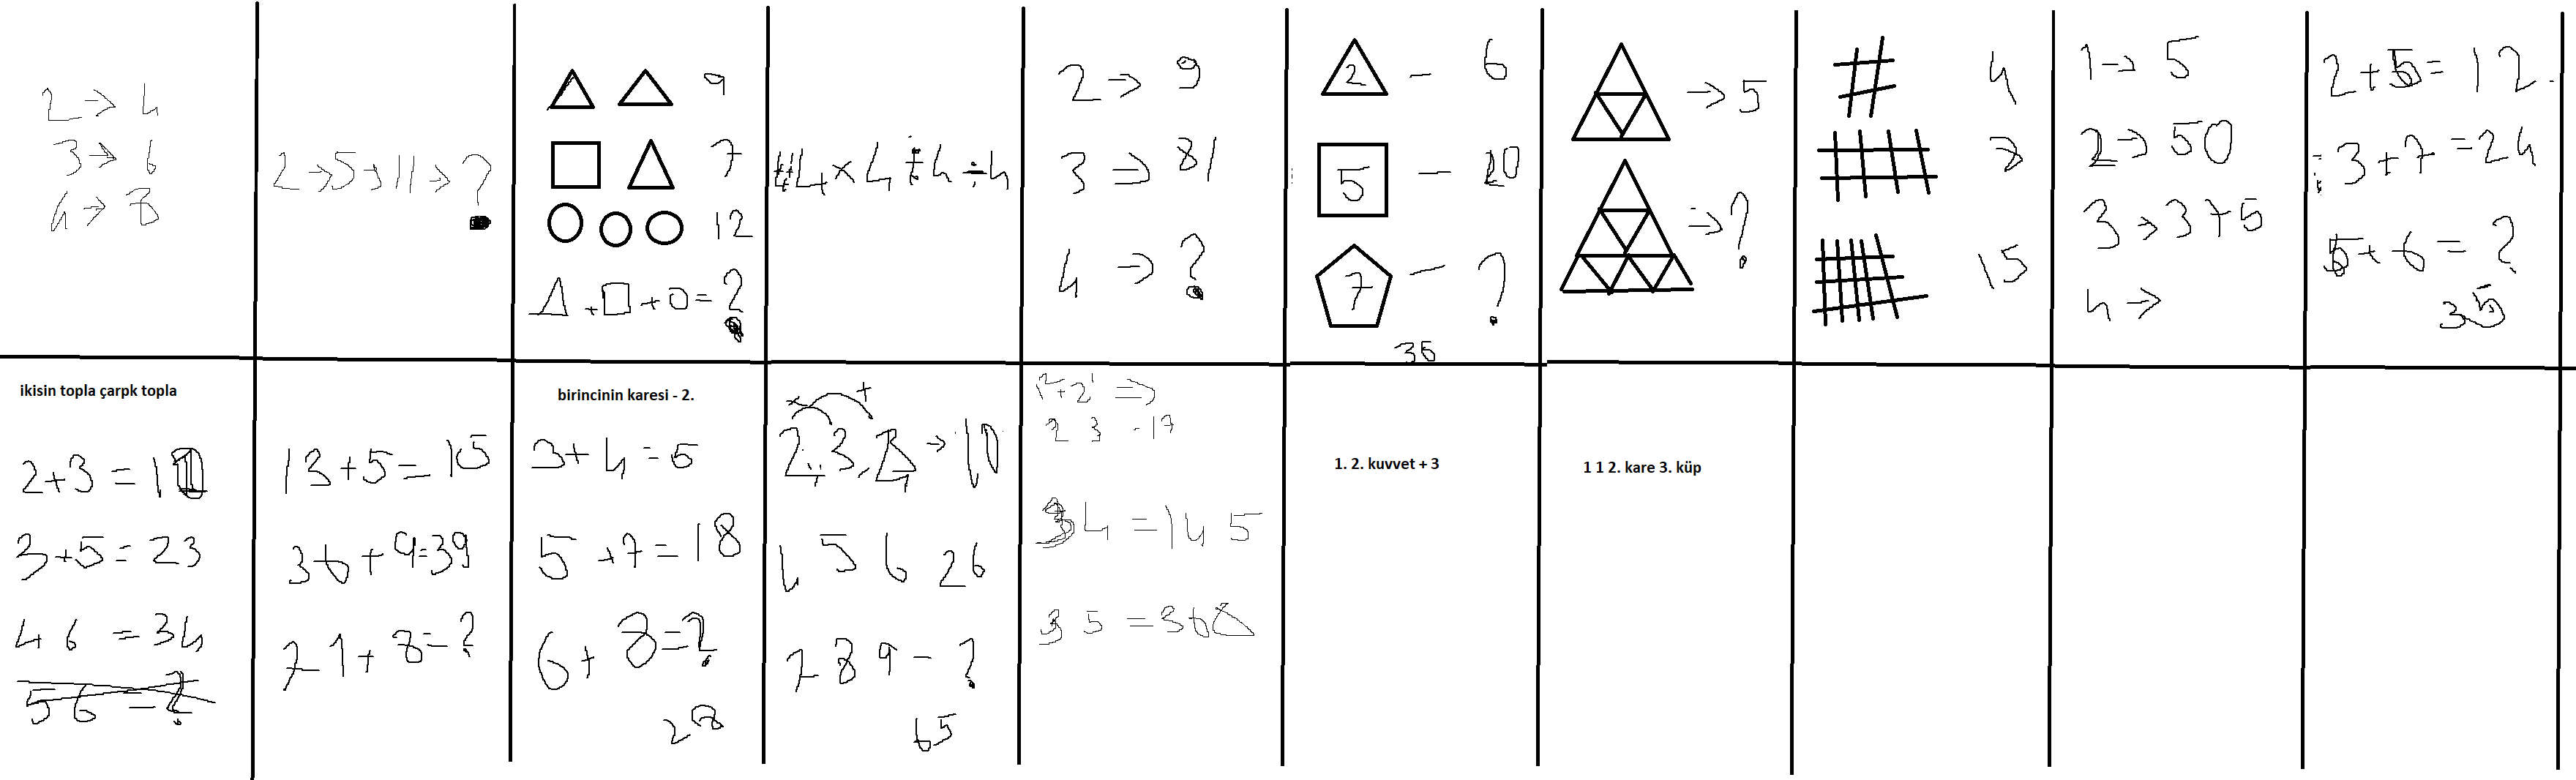 2 → 4
3 → 6
4 → 8
2 → 5 → 11 → ?
9
7
12
+ + = ?
4 x 4 + 4 ÷ 4
2 → 9
3 → 81
4 → ?
2 - 6
5 - 20
7 - ?
35
→ 5
→ ?
4
8
15
1 → 5
2 → 50
3 → 375
4 →
2 + 5 = 12
3 + 7 = 24
5 + 6 = ?
35
ikisin topla çarpk topla
2 + 3 = 11
3 + 5 = 23
4 6 = 34
5 6 = ?
13 + 5 = 15
36 + 9 = 39
71 + 8 = ?
birincinin karesi - 2.
3 + 4 = 5
5 + 7 = 18
6 + 8 = ?
28
x +
2, 3, 4 → 10
1 5 6 26
7 8 9 - ?
65
2 3 - 17
3 4 = 145
3 5 = 368
1. 2. kuvvet + 3
1 1 2. kare 3. küp